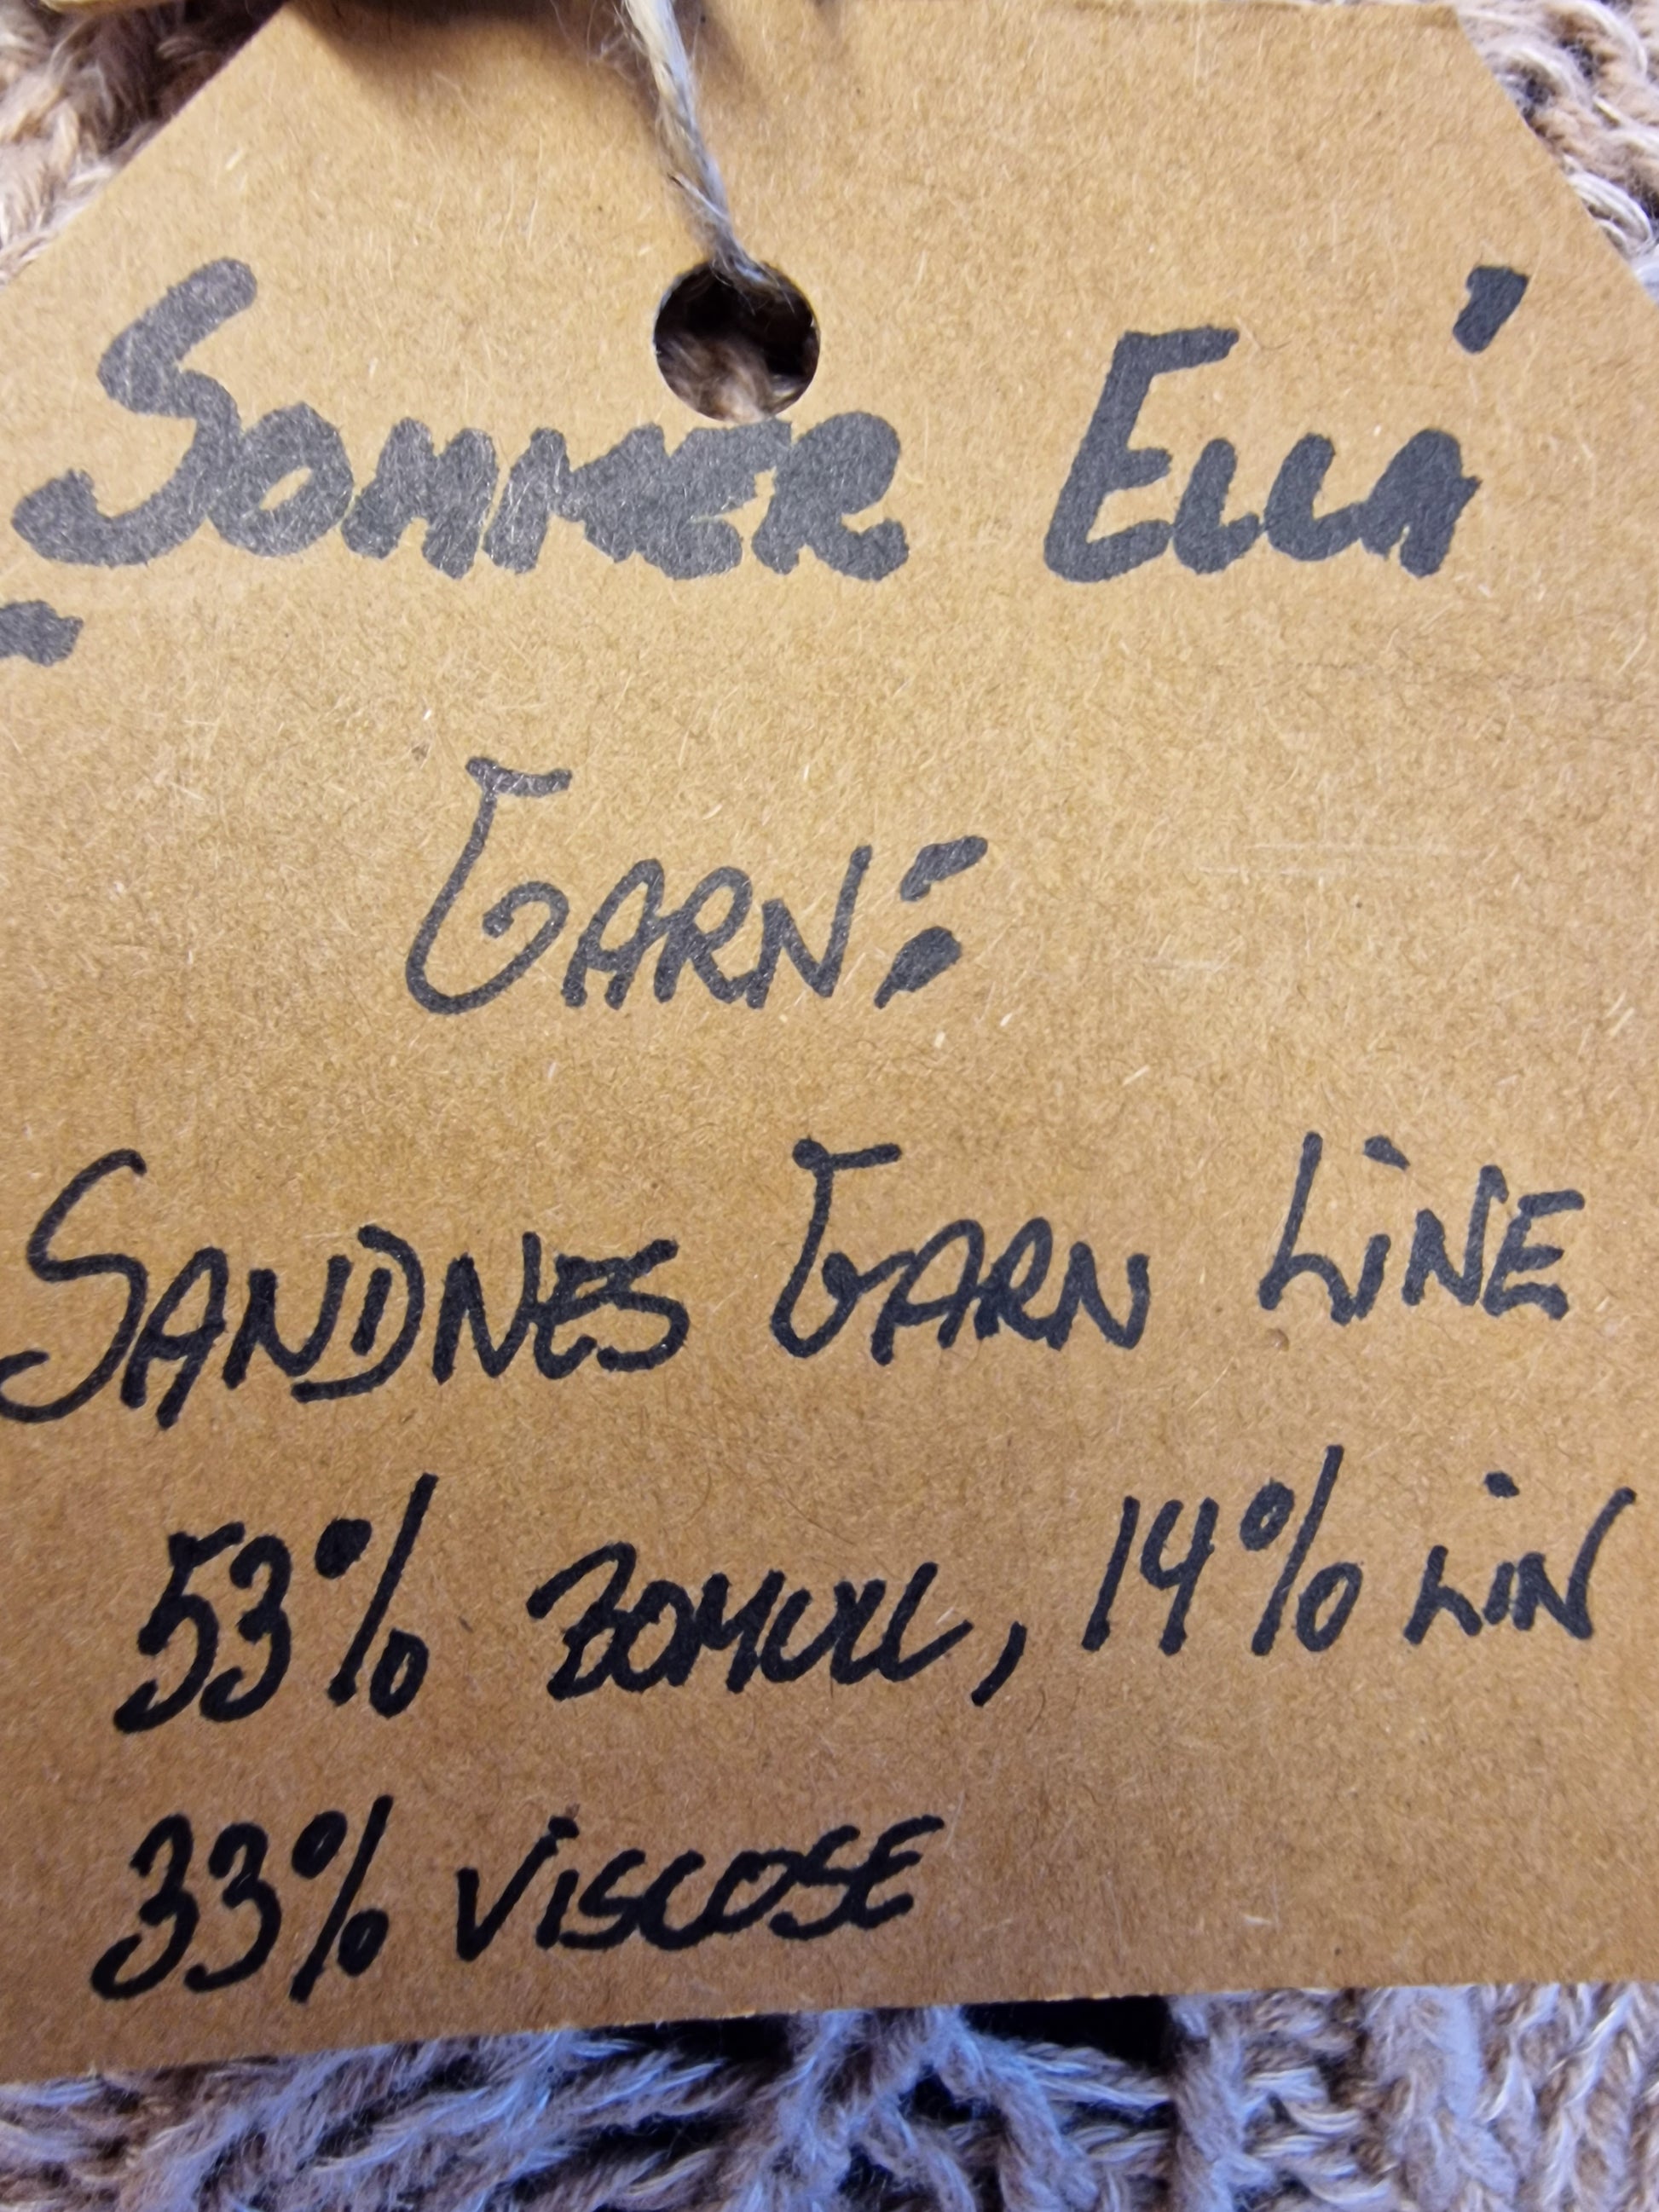 "SOMMER ELLA"
GARN:
SANDNES GARN LINE
53% BOMULL, 14% LIN
33% VISCOSE